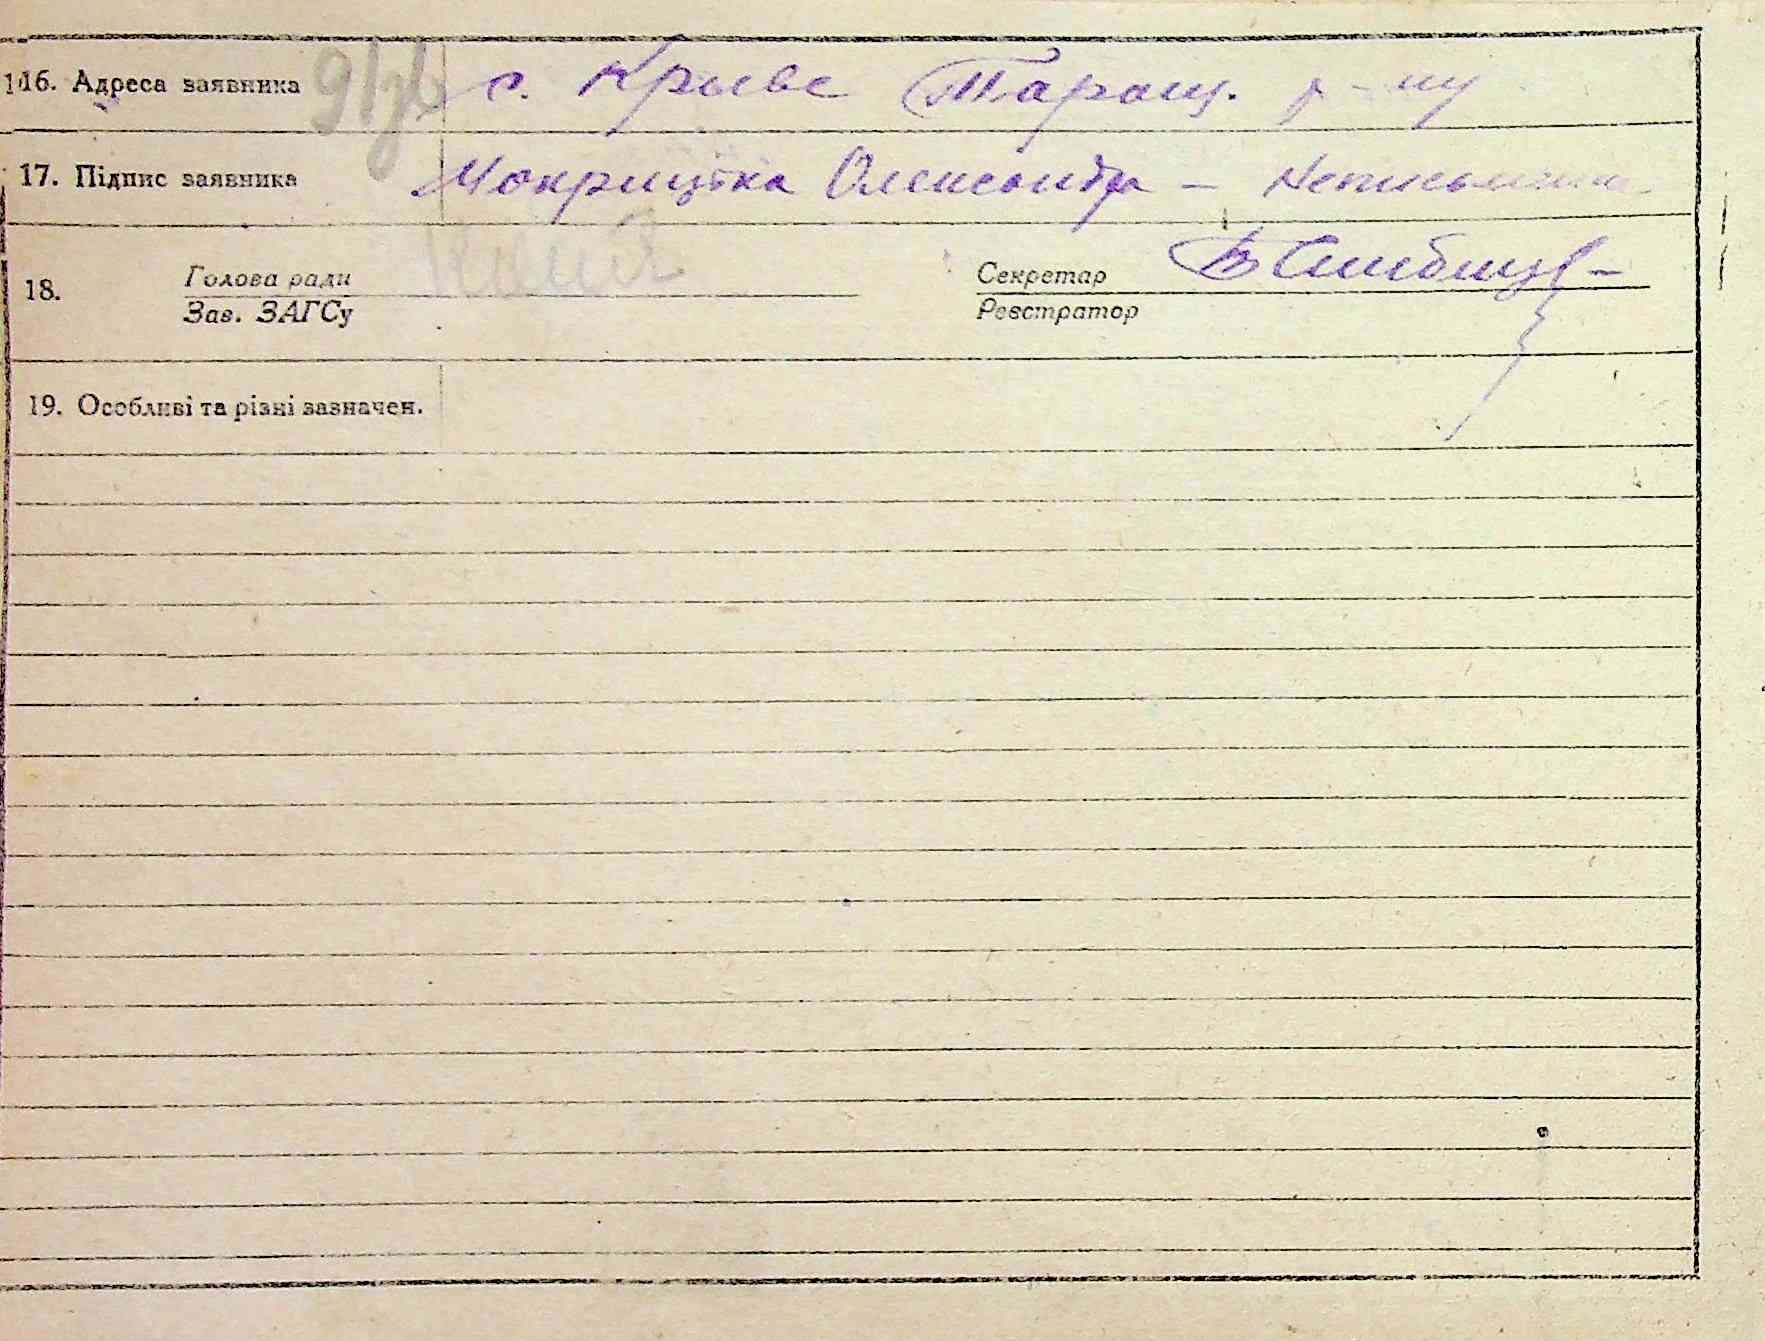 16. Адреса заявника с. Криве Таращ. р-ну
17. Підпис заявника Мокрицька Олександра – Неписьменна
18. Голова ради Секретар
Зав. ЗАГСу Реєстратор
19. Особливі та різні зазначен.